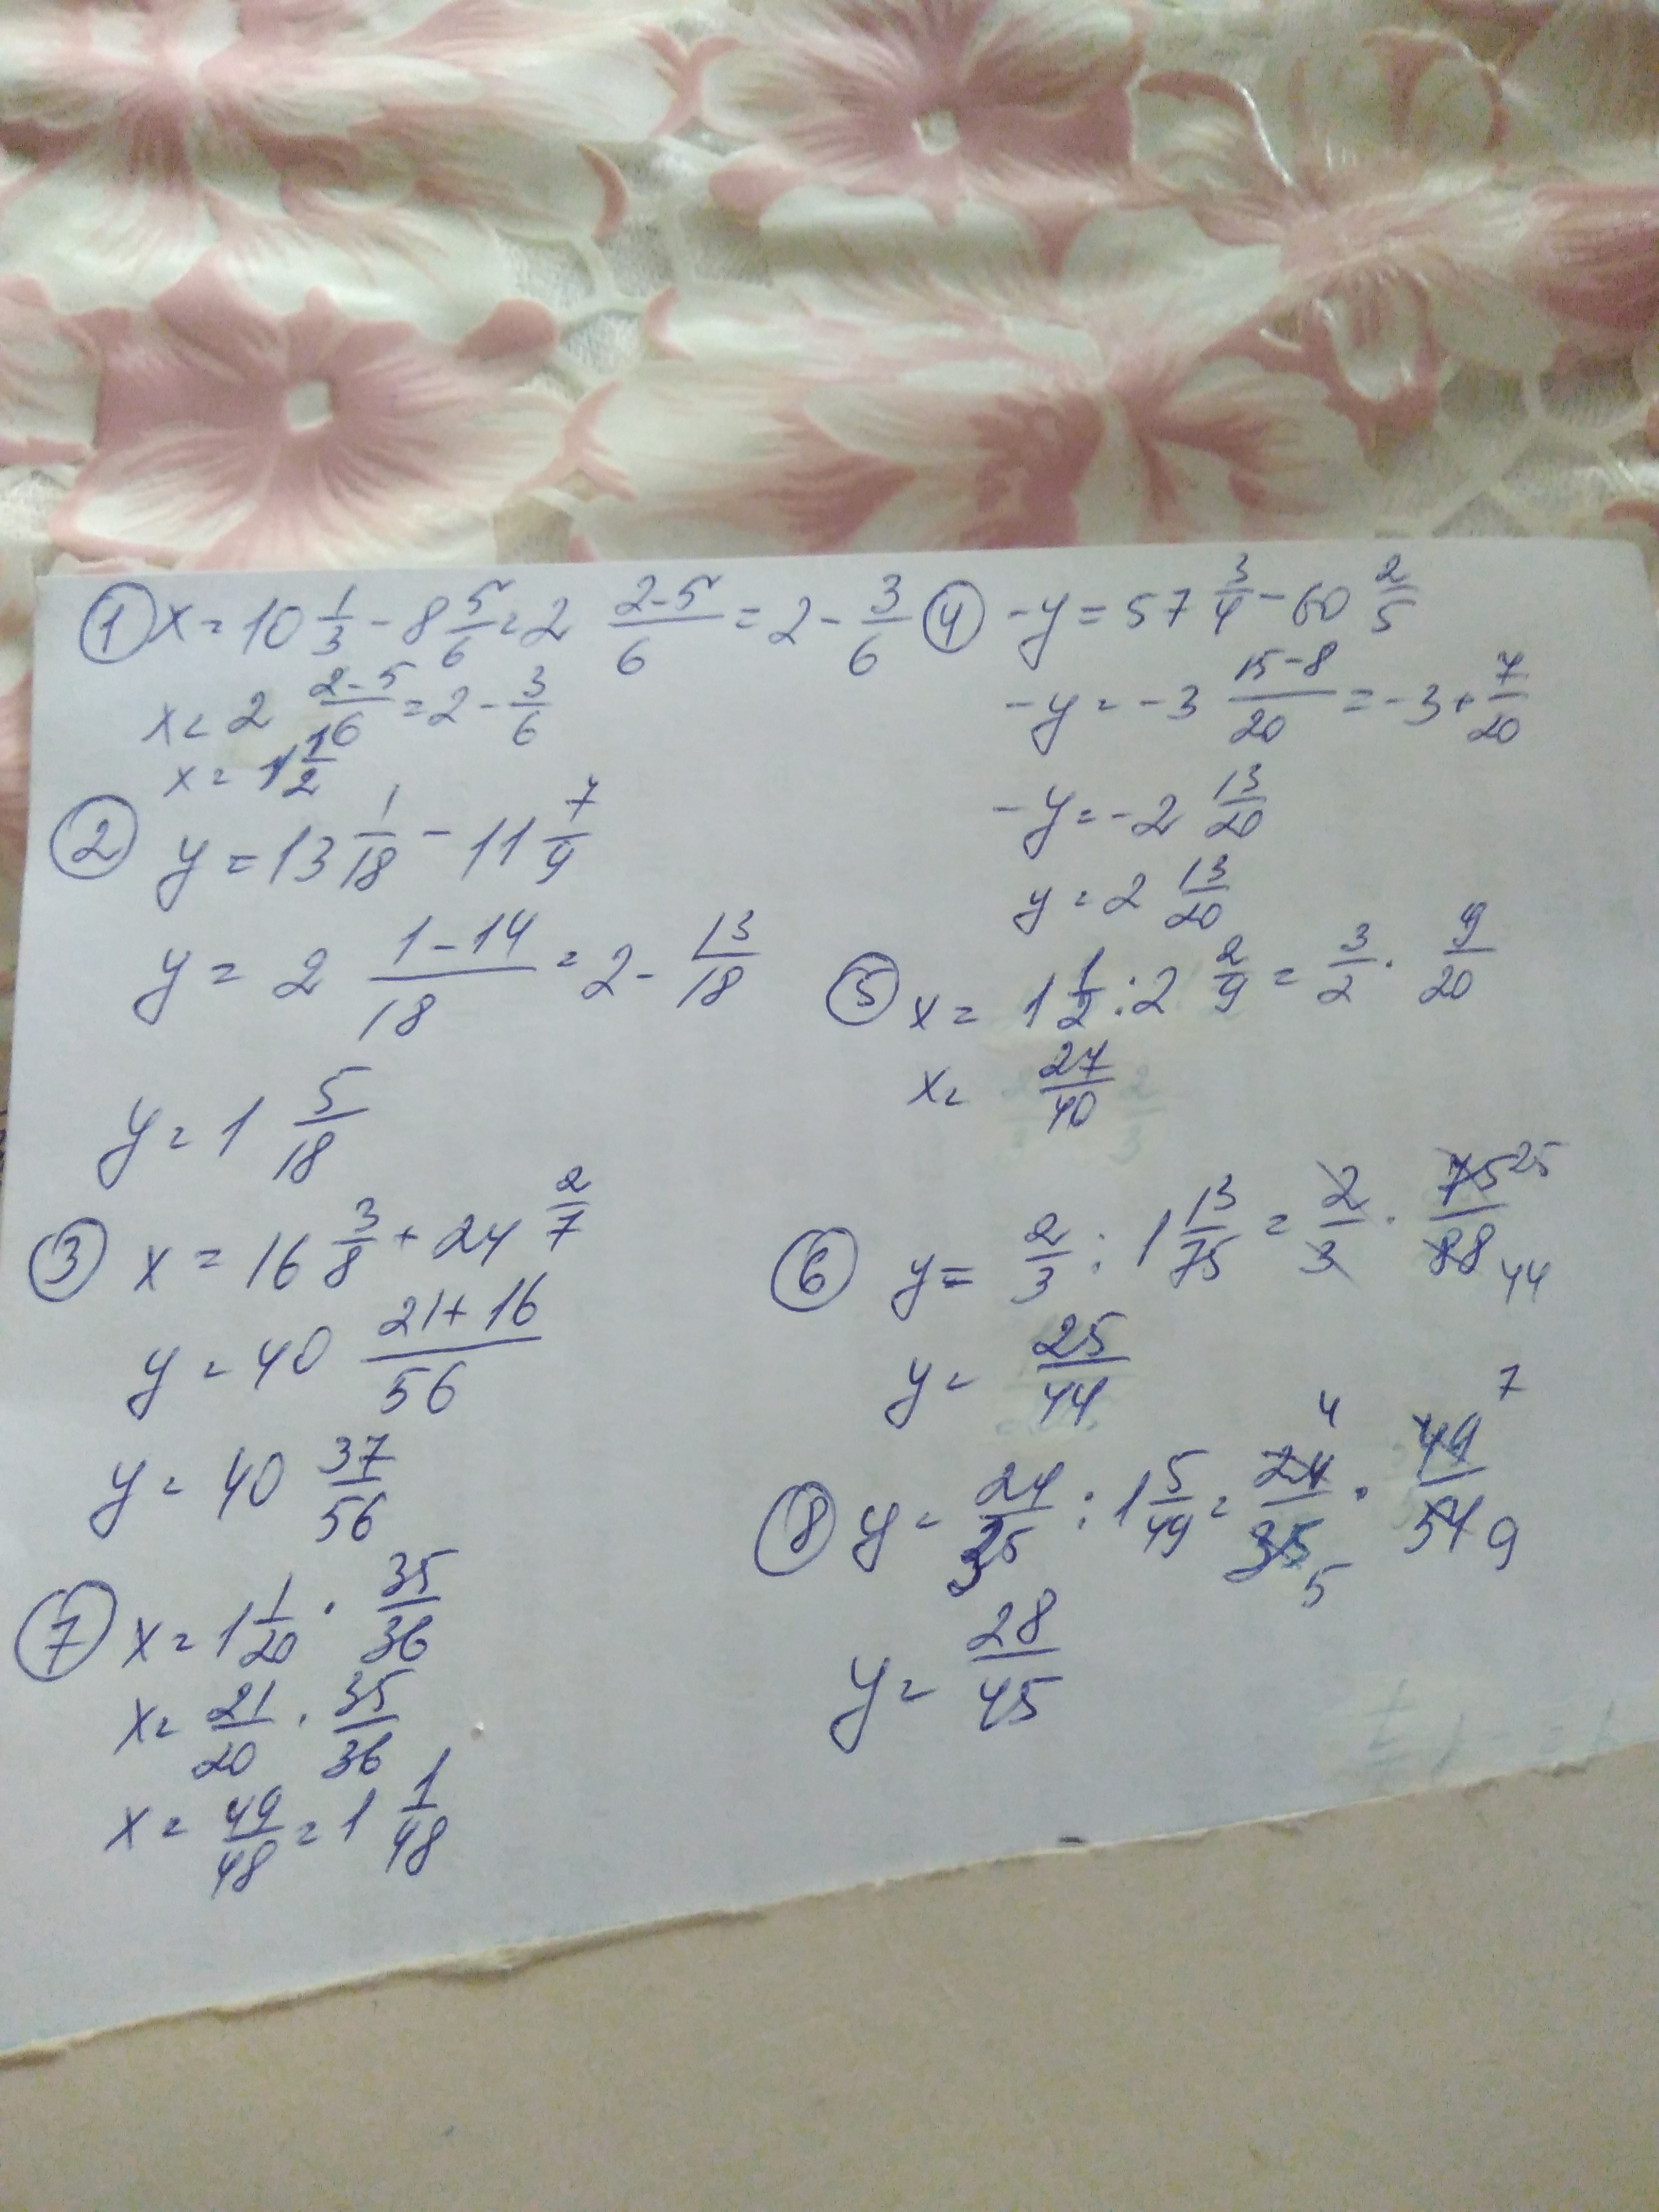 ① x = 10 1/3 - 8 5/6 = 2 (2-5)/6 = 2 - 3/6
x = 2 (2-5)/6 = 2 - 3/6
x = 1 1/2
② y = 13 1/18 - 11 7/9
y = 2 (1-14)/18 = 2 - 13/18
y = 1 5/18
③ x = 16 3/8 + 24 2/7
y = 40 (21+16)/56
y = 40 37/56
⑦ x = 1 1/20 · 35/36
x = 21/20 · 35/36
x = 49/48 = 1 1/48
④ -y = 57 3/4 - 60 2/5
-y = -3 (15-8)/20 = -3 + 7/20
-y = -2 13/20
y = 2 13/20
⑤ x = 1 1/2 : 2 2/9 = 3/2 · 9/20
x = 27/40
⑥ y = 2/3 : 1 13/75 = 2/3 · 75/88 25 44
y = 25/44
⑧ y = 24/35 : 1 5/49 = 24/35 · 49/54 4 5 7 9
y = 28/45